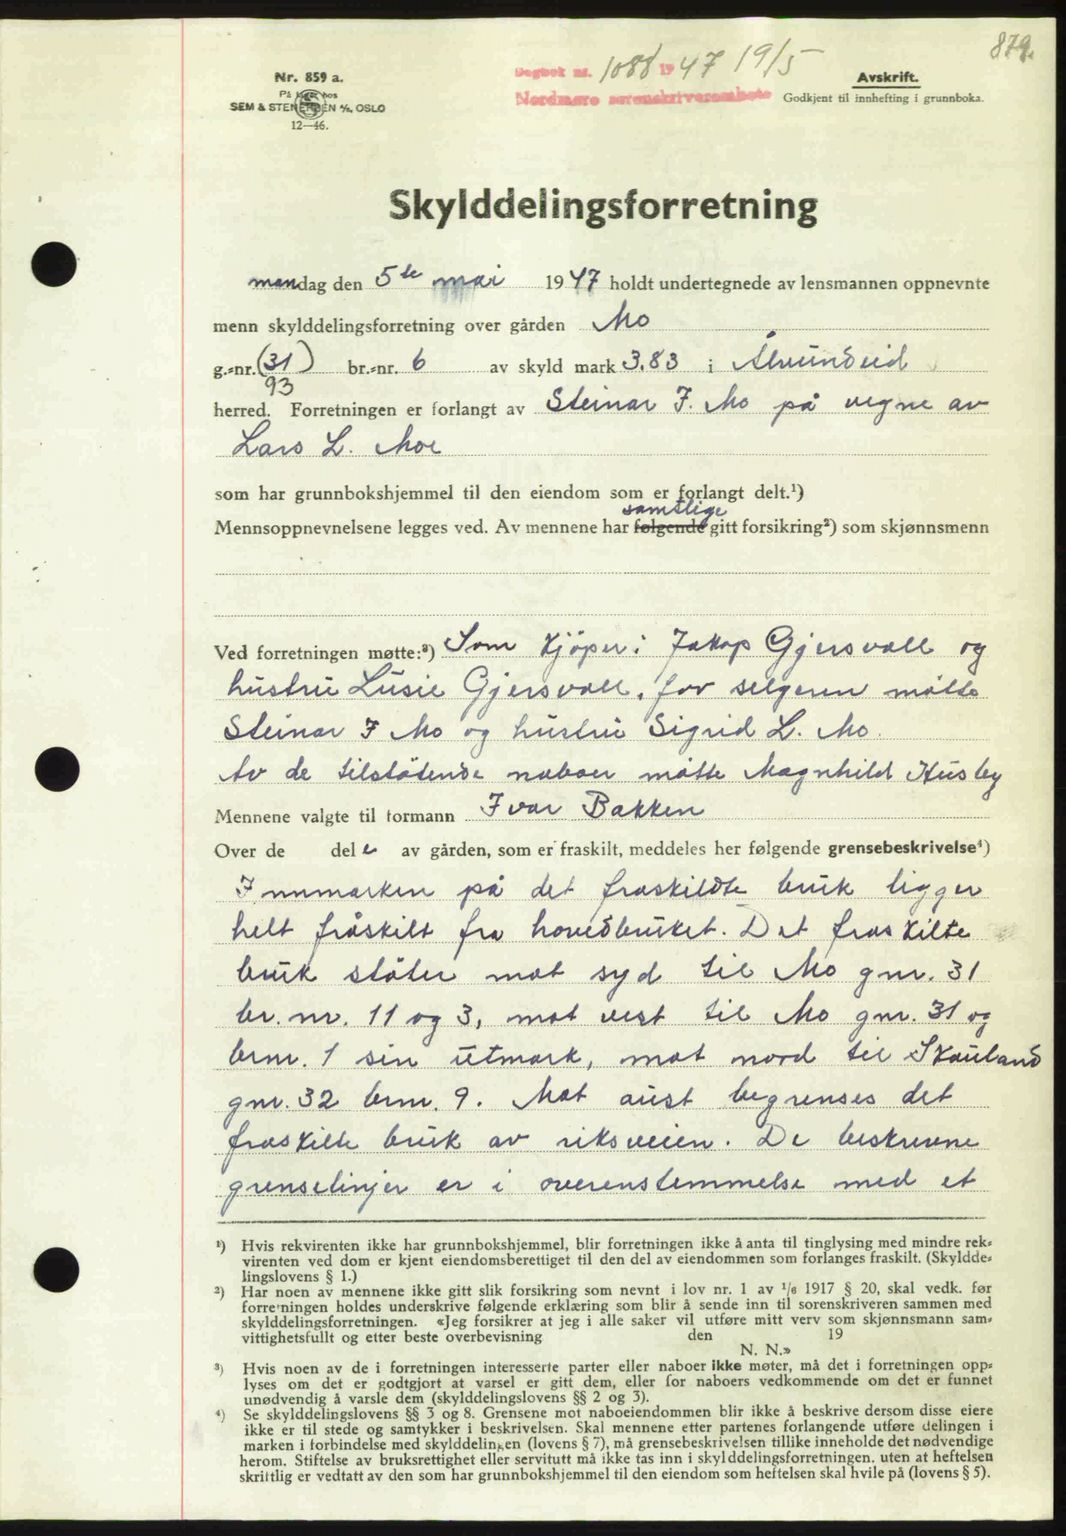 879.
Nr. 859 a.
På lager hos
SEM & STENERSEN A/S, OSLO
12—46.
Dagbok nr. 1088 1947 19/5
Nordmøre sorenskriverembete
Avskrift.
Godkjent til innhefting i grunnboka.
Skylddelingsforretning
mandag den 5te mai 1947 holdt undertegnede av lensmannen oppnevnte
menn skylddelingsforretning over gården Mo
g.-nr. (31) br.-nr. 6 av skyld mark 3.83 i Ålvundeid
93
herred. Forretningen er forlangt av Steinar J. Mo på vegne av
Lars L. Moe
som har grunnbokshjemmel til den eiendom som er forlangt delt.¹)
samtlige
Mennsoppnevnelsene legges ved. Av mennene har følgende gitt forsikring²) som skjønnsmenn
Ved forretningen møtte:³) Som kjöper: Jakop Gjersvoll og
hustru Lusie Gjersvoll, for selgeren mötte
Steinar J Mo og hustru Sigrid L. Mo.
Av de tilstötende naboer mötte Magnhild Husby
Mennene valgte til formann Ivar Bakken
Over de dele av gården, som er fraskilt, meddeles her følgende grensebeskrivelse⁴)
Innmarken på det fraskildte bruk ligger
helt fråskilt fra hovedbruket. Det fraskilte
bruk stöter mot syd til Mo gnr. 31
br. nr. 11 og 3, mot vest til Mo gnr. 31 og
brnr. 1 sin utmark, mot nord til Skauland
gnr. 32 brnr. 9. Mot aust begrenses det
fraskilte bruk av riksveien. De beskrevne
grenselinjer er i overenstemmelse med et
¹) Hvis rekvirenten ikke har grunnbokshjemmel, blir forretningen ikke å anta til tinglysing med mindre rek-
virenten ved dom er kjent eiendomsberettiget til den del av eiendommen som forlanges fraskilt. (Skyldde-
lingslovens § 1.)
²) Har noen av mennene ikke gitt slik forsikring som nevnt i lov nr. 1 av 1/6 1917 § 20, skal vedk. før
forretningen holdes underskrive følgende erklæring som blir å sende inn til sorenskriveren sammen med
skylddelingsforretningen. «Jeg forsikrer at jeg i alle saker vil utføre mitt verv som skjønnsmann sam-
vittighetsfullt og etter beste overbevisning den 19
N. N.»
³) Hvis noen av de i forretningen interesserte parter eller naboer ikke møter, må det i forretningen opp-
lyses om det er godtgjort at varsel er gitt dem, eller for naboers vedkommende om det er funnet
unødvendig å varsle dem (skylddelingslovens §§ 2 og 3).
⁴) Se skylddelingslovens §§ 3 og 8. Grensene mot naboeiendommen blir ikke å beskrive dersom disse eiere
ikke er til stede og samtykker i beskrivelsen. Skal mennene etter partenes forlangende utføre delingen i
marken i forbindelse med skylddelingen (lovens § 7), må grensebeskrivelsen tillike inneholde det nødvendige
herom. Stiftelse av bruksrettighet eller servitutt må ikke tas inn i skylddelingsforretningen, uten at heftelsen
skriftlig er vedtatt av den som har grunnbokshjemmel til den eiendom som heftelsen skal hvile på (lovens § 5).